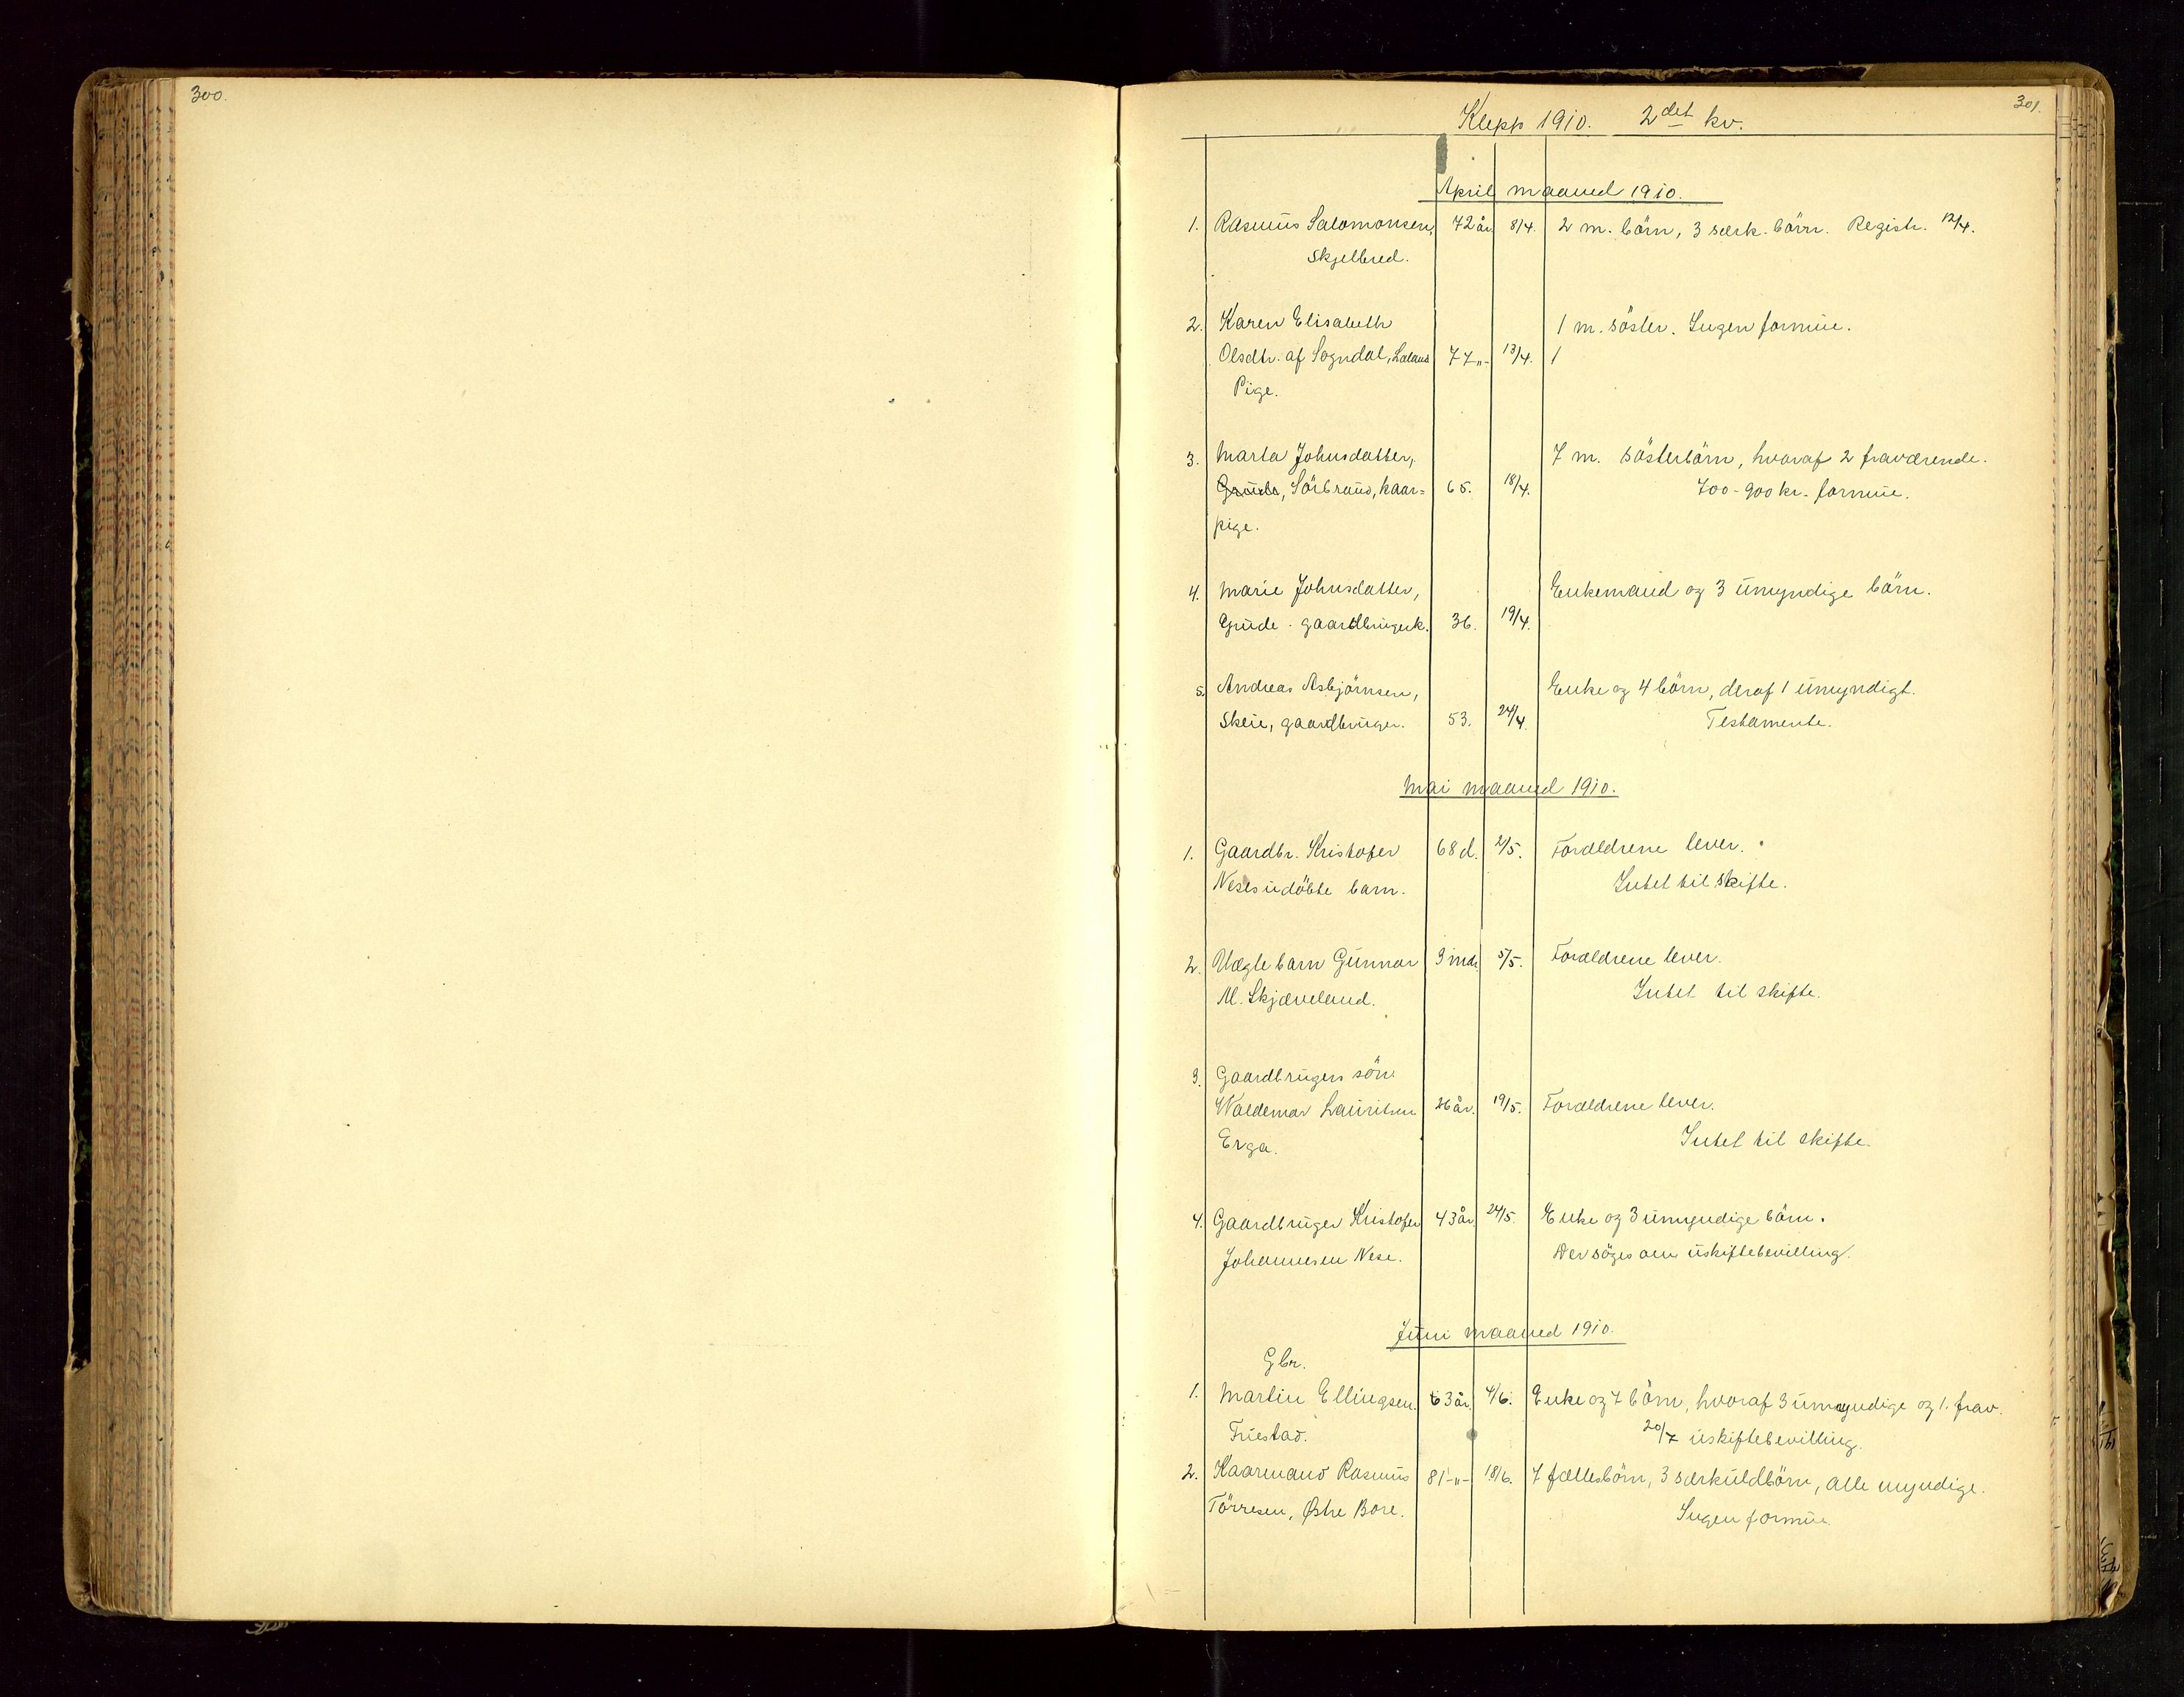 300.
301.
Klepp 1910. 2det kv.
April maaned 1910.
1. Rasmus Salomonsen, 72 år 8/4. 2 m. börn, 3 særk. börn. Registr. 12/4.
Skjelbred.
2. Karen Elisabeth 1 m. söster. Ingen formue.
Olsdtr. af Sogndal, Laland 77 -"- 13/4. 1
Pige.
3. Marta Johnsdatter, 7 m. sösterbörn, hvoraf 2 fraværende.
Grude, Sörbraud, kaar= 65. 18/4. 700-900 kr. formue.
pige.
4. Marie Johnsdatter, Enkemand og 3 umyndige börn.
Grude. gaardbrugerk. 36. 19/4.
5. Andreas Asbjörnsen, Enke og 4 börn, deraf 1 umyndigt.
Skeie, gaardbruger. 53. 24/4. Testamente.
Mai maaned 1910.
1. Gaardbr. Kristofer 68 d. 2/5. Forældrene lever.
Neses udöbte barn. Intet til skifte.
2. Uægte barn Gunnar 9 md. 5/5. Forældrene lever.
M. Skjæveland. Intet til skifte.
3. Gaardbrugers sön
Waldemar Lauritsen 26 år. 19/5. Forældrene lever.
Erga. Intet til skifte.
4. Gaardbruger Kristofer 43 år 24/5. Enke og 3 umyndige börn.
Johannesen Nese. Der söges om uskiftebevilling.
Juni maaned 1910.
Gbr.
1. Martin Ellingsen 63 år. 4/6. Enke og 7 börn, hvoraf 3 umyndige og 1. frav.
Friestad. 20/7 uskiftebevilling.
2. Kaarmand Rasmus 81 -"- 18/6. 7 fællesbörn, 3 særkuldbörn, alle myndige.
Törresen, Østre Bore. Ingen formue.